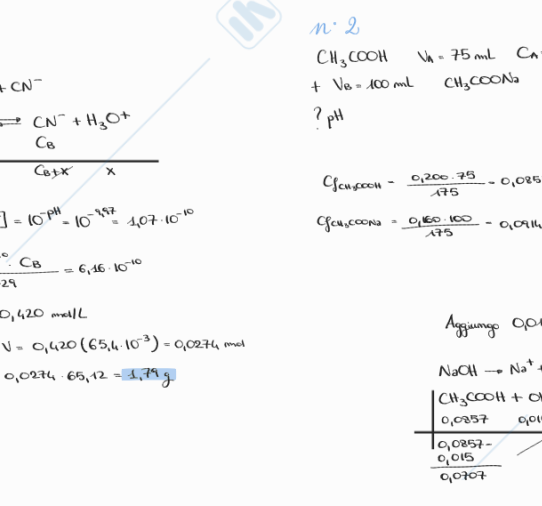 + CN⁻
⇌ CN⁻ + H₃O+
C_B
C_B+x x
] = 10^-pH = 10^-9,97 = 1,07·10^-10
· C_B = 6,16·10^-10
29
0,420 mol/L
V = 0,420 (65,4·10^-3) = 0,0274 mol
0,0274 · 65,12 = 1,79 g
n· 2
CH₃COOH V_A = 75 mL C_A
+ V_B = 100 mL CH₃COONa
? pH
Cf_CH₃COOH = 0,200 · 75 / 175 = 0,085
Cf_CH₃COONa = 0,160 · 100 / 175 = 0,0914
Aggiungo 0,01
NaOH → Na⁺ +
CH₃COOH + OH
0,0857 0,01
0,0857-
0,015
0,0707